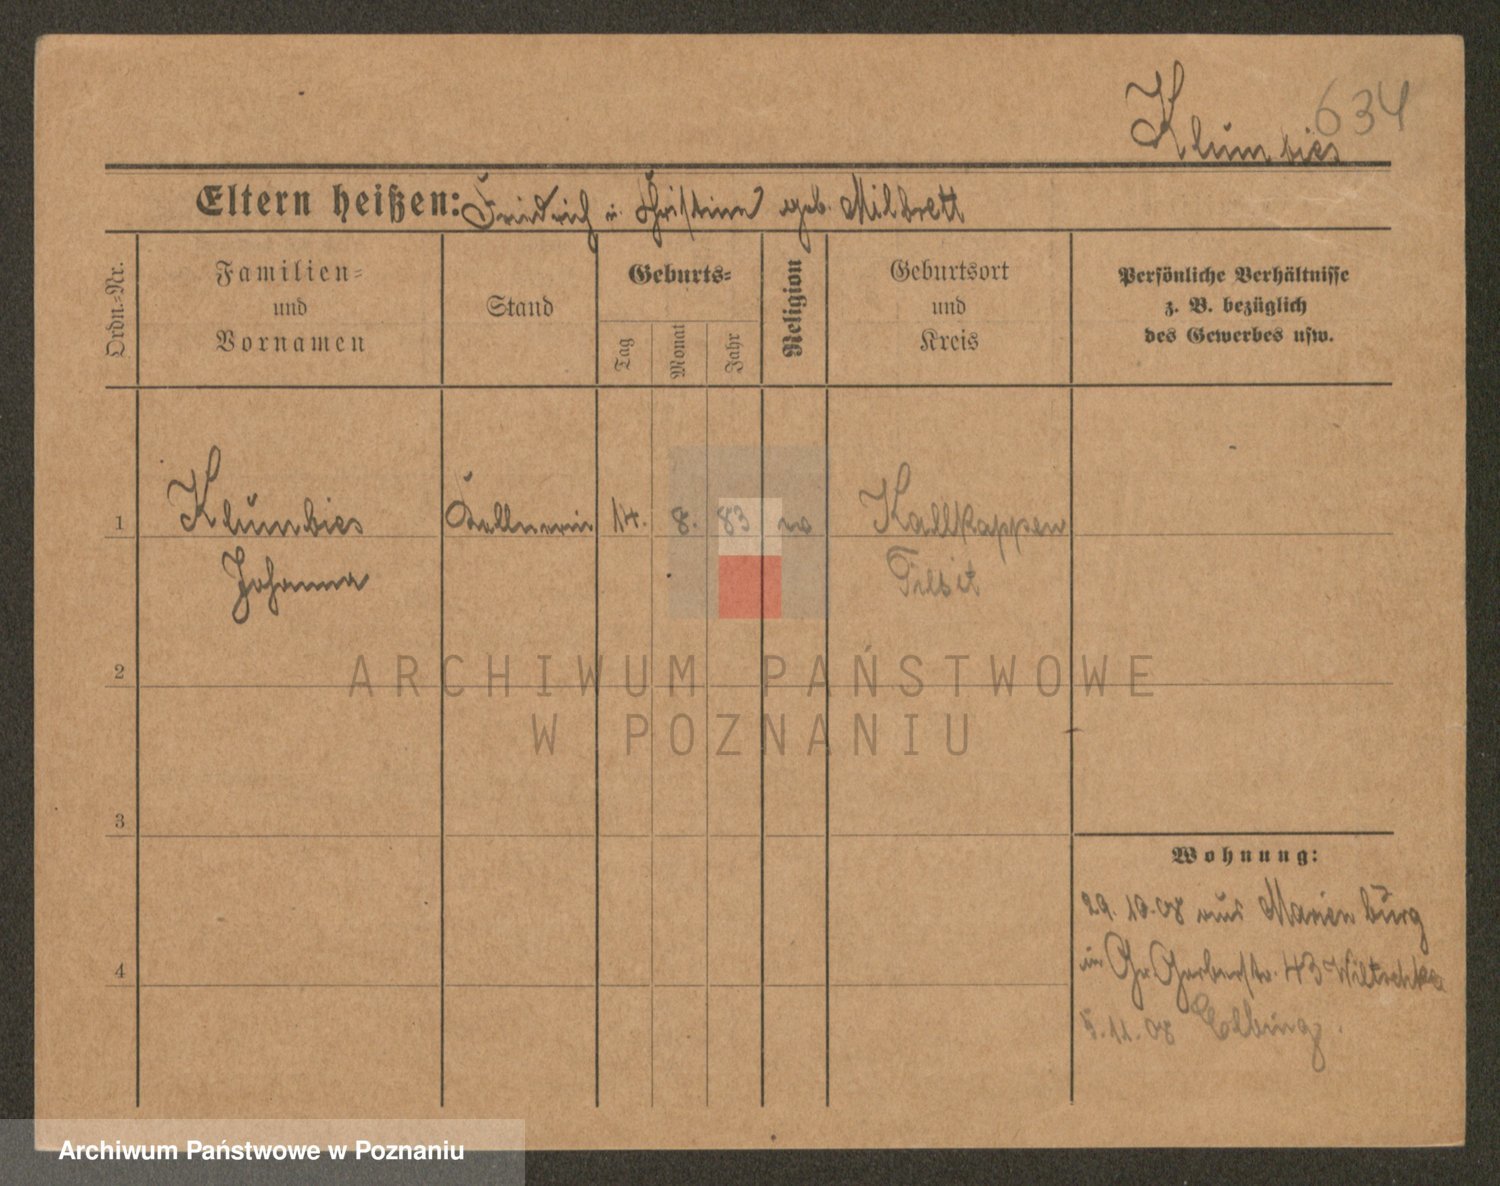 634
Klumbies
Eltern heißen: Friedrich u. Christine geb. Milbrett
Ordn.=Nr.
Familien=
und
Vornamen
Stand
Geburts=
Tag
Monat
Jahr
Religion
Geburtsort
und
Kreis
Persönliche Verhältnisse
z. B. bezüglich
des Gewerbes usw.
1
Klumbies
Johanna
Kellnerin
14.
8.
83
ev
Kallkappen
Tilsit
2
3
4
Wohnung:
29. 10. 08 aus Marienburg
in Gr. Gerberstr. 43 Wiltschke
5. 11. 08 Elbing.
ARCHIWUM PAŃSTWOWE
W POZNANIU
Archiwum Państwowe w Poznaniu